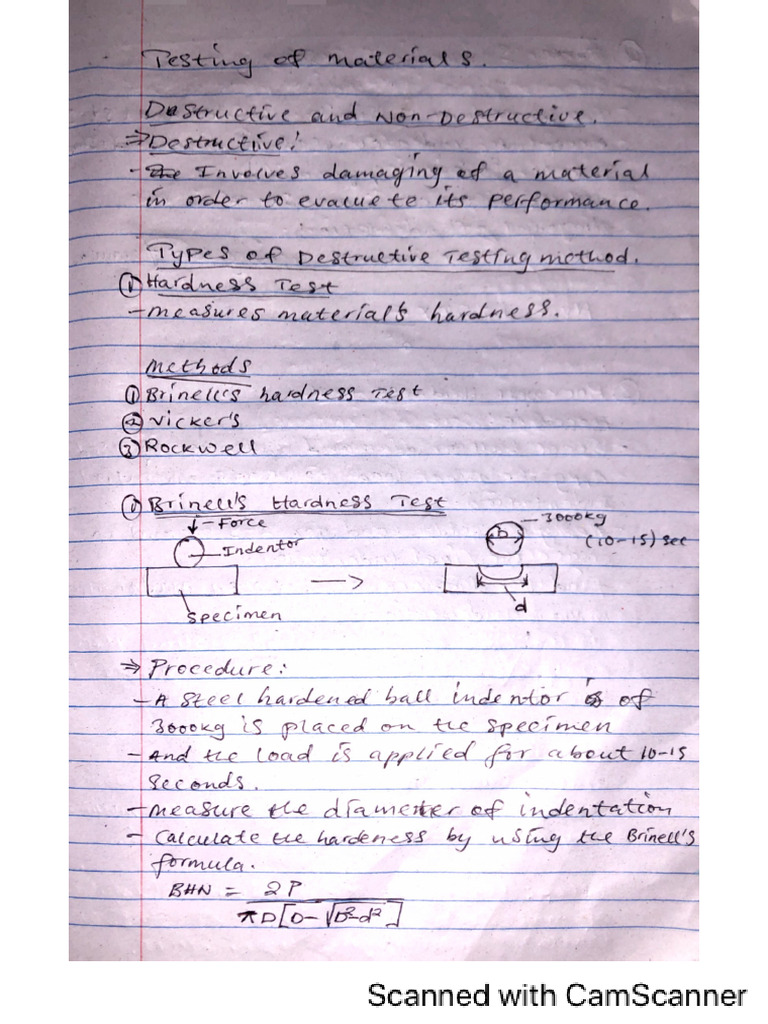 Testing of materials.
Destructive and Non-Destructive.
⇒Destructive:
- Involves damaging of a material
in order to evacuete its performance.
Types of Destructive Testing method.
① Hardness Test
- measures material's hardness.
methods
① Brinell's hardness Test
② Vicker's
③ Rockwell
① Brinell's Hardness Test
↓ - Force
Indentor
specimen
→
D
3000kg
(10-15) sec
d
⇒ Procedure:
- A steel hardened ball indentor of
3000kg is placed on the specimen
- And the load is applied for about 10-15
seconds.
- measure the diameter of indentation
- Calculate the hardeness by using the Brinell's
formula.
BHN = 2P
πD[D-√D²-d²]
Scanned with CamScanner